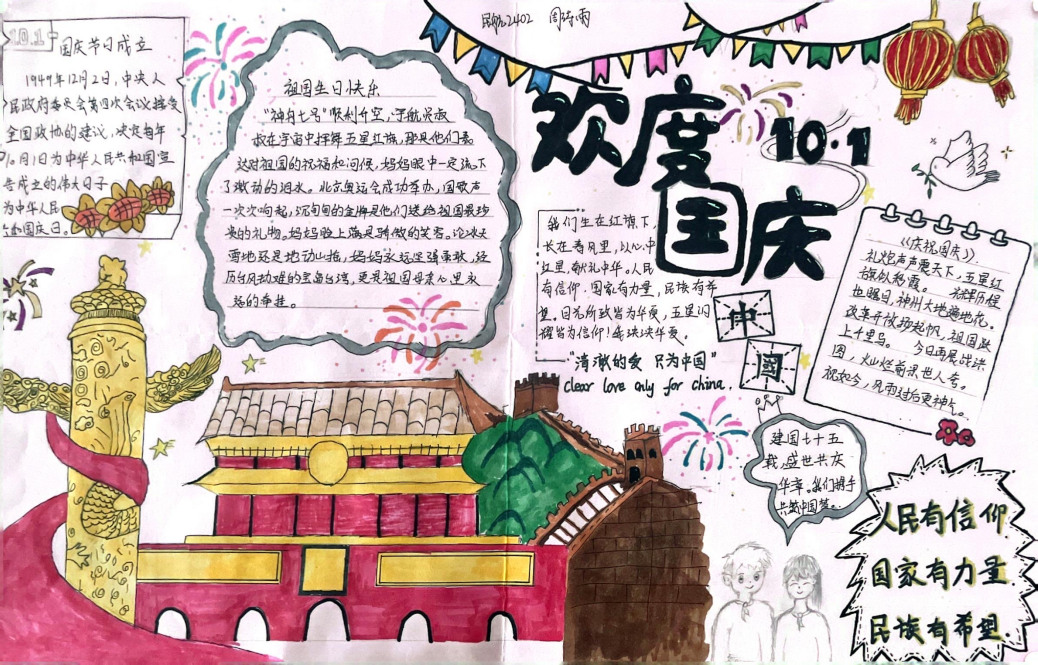 民航2402 周诗雨
10.1
国庆节日成立
1949年12月2日，中央人
民政府委员会第四次会议接受
全国政协的建议，决定每年
10月1日为中华人民共和国宣
告成立的伟大日子
为中华人民
共和国庆日。
祖国生日快乐
"神舟七号"顺利升空，宇航员叔
叔在宇宙中挥舞五星红旗，那是他们表
达对祖国的祝福和问候，妈妈眼中一定流下
了激动的泪水。北京奥运会成功举办，国歌声
一次次响起，沉甸甸的金牌是他们送给祖国最珍
贵的礼物。妈妈脸上满是骄傲的笑容。论冰天
雪地还是地动山摇，妈妈永远坚强勇敢，经
历台风动难的宝岛台湾，更是祖国母亲心里永
远的牵挂。
欢度
国庆
10.1
我们生在红旗下，
长在春风里，以心中
红星，献礼中华。人民
有信仰，国家有力量，民族有希
望。目光所致皆为华夏，五星闪
耀皆为信仰！泱泱华夏。
"清澈的爱 只为中国"
clear love only for china.
中
国
《庆祝国庆》
礼炮声声震天下，五星红
旗似彩霞。 光辉历程
也瞩目，神州大地遍地花。
改革开放扬起帆，祖国跃
上千里马。 今日再展战决
图，灿烂前景世人夸。
祝如今，风雨过后更神气。
建国七十五
载，盛世共庆
华章。我们携手
共筑中国梦。
人民有信仰
国家有力量
民族有希望.